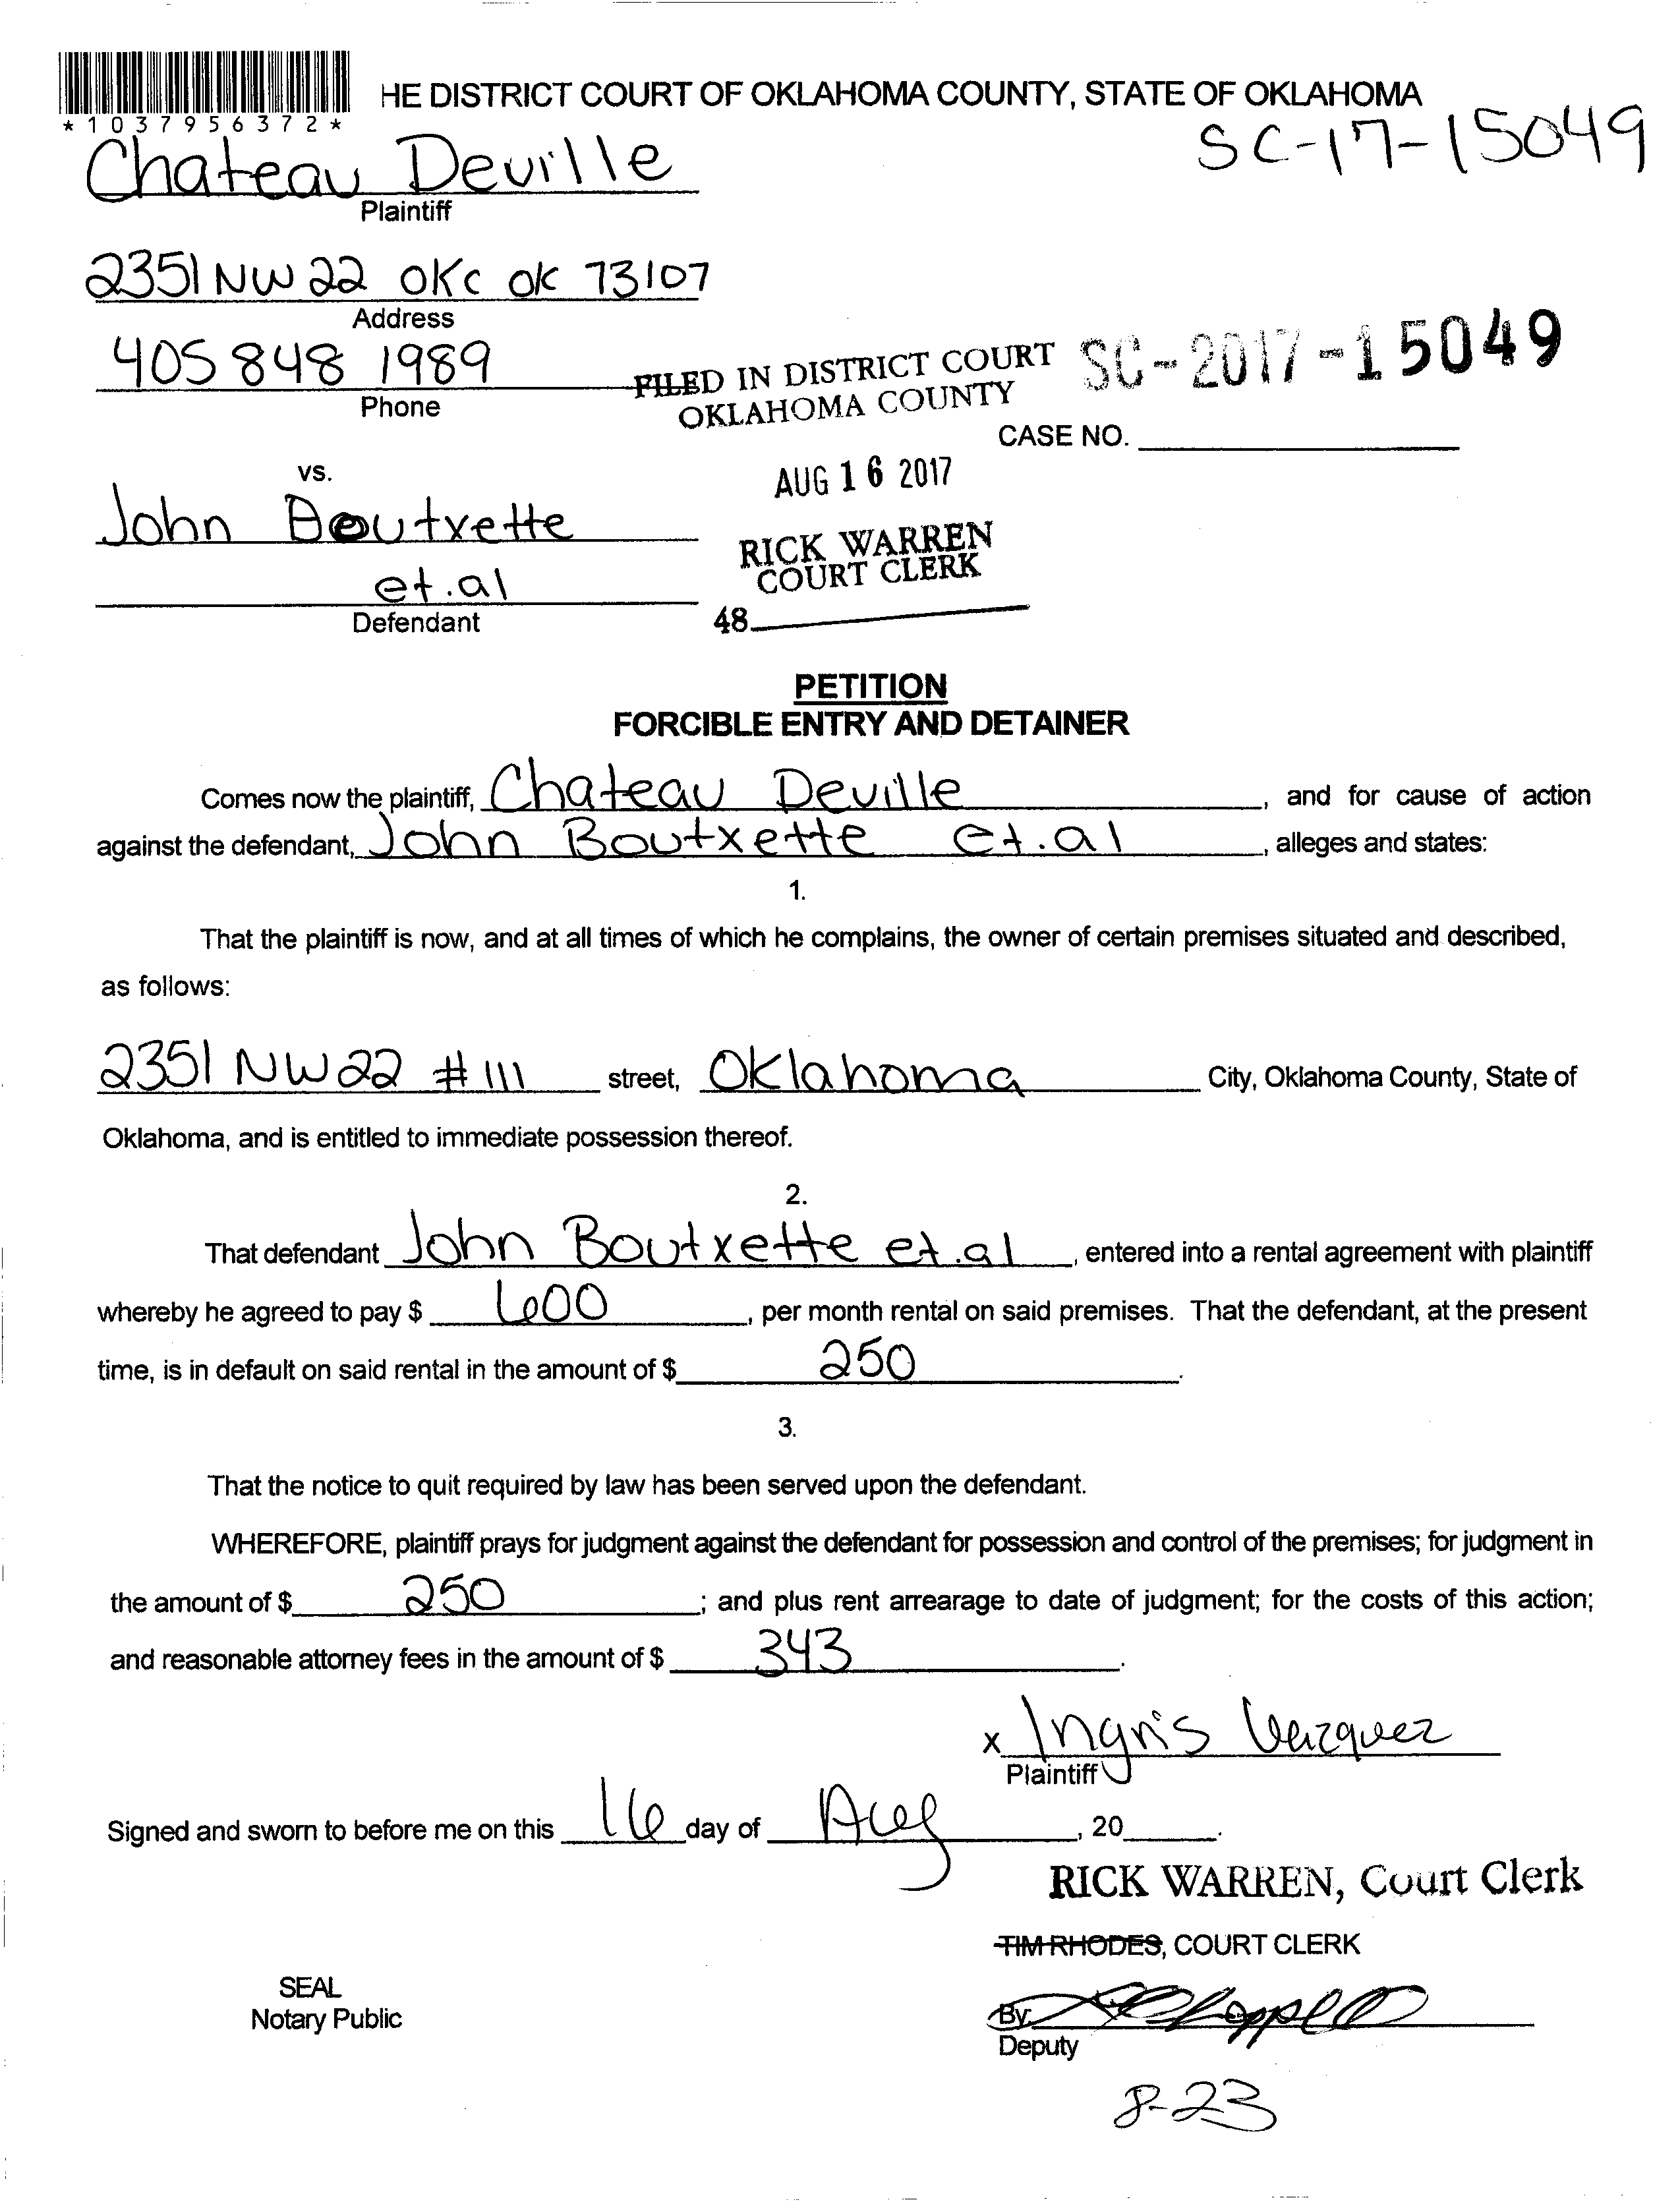 HE DISTRICT COURT OF OKLAHOMA COUNTY, STATE OF OKLAHOMA
*1037956372*
SC-17-15049
Chateau Deville
Plaintiff
2351 NW 22 OKC OK 73107
Address
405 848 1989
Phone
FILED IN DISTRICT COURT
OKLAHOMA COUNTY
SC-2017-15049
CASE NO.
vs.
AUG 16 2017
John Boutxette
RICK WARREN
COURT CLERK
et.al
Defendant
48
PETITION
FORCIBLE ENTRY AND DETAINER
Comes now the plaintiff, Chateau Deville, and for cause of action
against the defendant, John Boutxette et.al, alleges and states:
1.
That the plaintiff is now, and at all times of which he complains, the owner of certain premises situated and described,
as follows:
2351 NW 22 #111 street, Oklahoma City, Oklahoma County, State of
Oklahoma, and is entitled to immediate possession thereof.
2.
That defendant John Boutxette et.al, entered into a rental agreement with plaintiff
whereby he agreed to pay $ 600, per month rental on said premises. That the defendant, at the present
time, is in default on said rental in the amount of $ 250.
3.
That the notice to quit required by law has been served upon the defendant.
WHEREFORE, plaintiff prays for judgment against the defendant for possession and control of the premises; for judgment in
the amount of $ 250; and plus rent arrearage to date of judgment; for the costs of this action;
and reasonable attorney fees in the amount of $ 343.
x Ingris Vazquez
Plaintiff
Signed and sworn to before me on this 16 day of Aug, 20 .
RICK WARREN, Court Clerk
TIM RHODES, COURT CLERK
SEAL
Notary Public
By:
Deputy
8-23